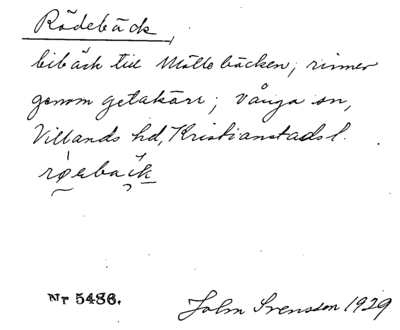 Rådebäck
bibäck till Mölle bäcken; rinner
genom getakärr; Vånga sn,
Villands hd, Kristianstads l.
Nr 5486.
John Svensson 1929